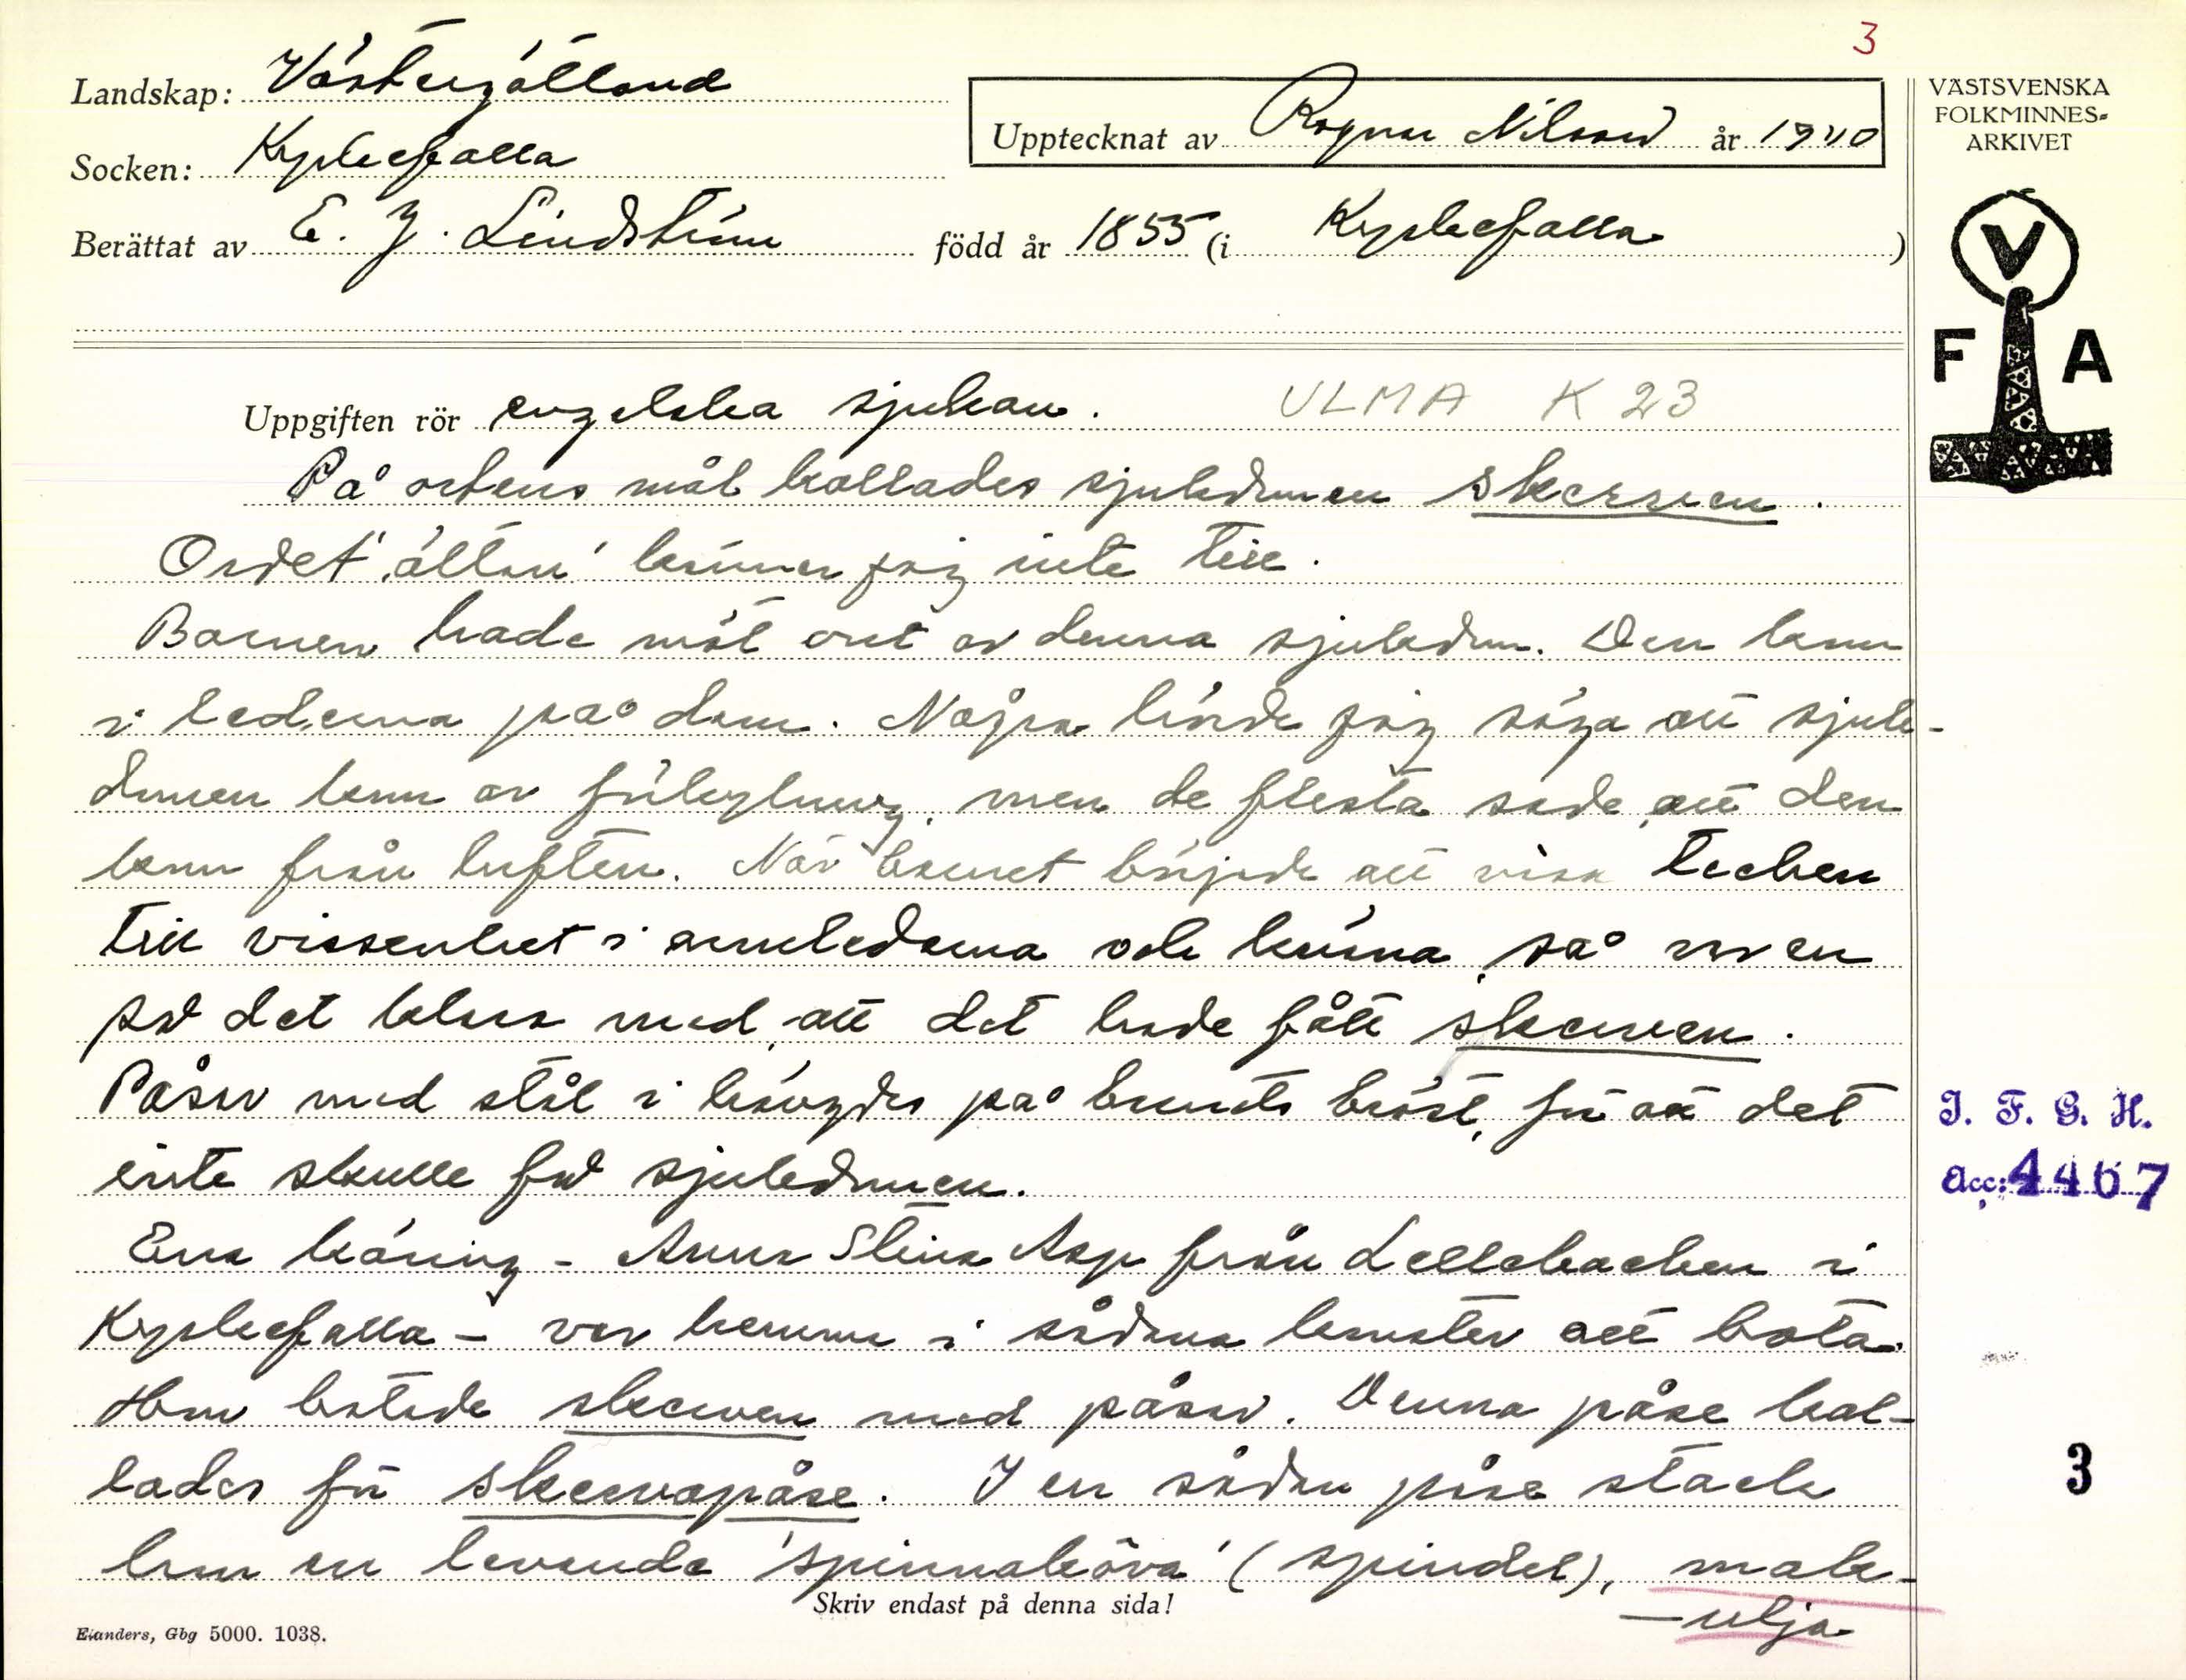 3
Landskap: Västergötland
Socken: Kyrkefalla
Upptecknat av Ragnar Nilsson år 1940
Berättat av E. J. Lindström född år 1855 (i Kyrkefalla)
VÄSTSVENSKA
FOLKMINNES-
ARKIVET
V
F A
Uppgiften rör engelska sjukan. ULMA K 23
På ortens mål kallades sjukdomen skerven.
Ordet 'ältan' känner jag inte till.
Barnen hade möt ont av denna sjukdom. Den kom
i lederna på dom. Några hörde jag säga att sjuk-
domen kom av förkylning, men de flesta sade, att den
kom från luften. När barnet började att visa tecken
till vissenhet i armlederna och knäna, så var en
på det klara med, att det hade fått skerven.
Påsar med stål i hängdes på barnets bröst, för att det
inte skulle få sjukdomen.
Ena käring - Anna Stina Asp från Lellebacken i
Kyrkefalla - var hemma i sådana konster att bota.
Hon botade skerven med påsar. Denna påse kal-
lades för skervapåse. I en sådan påse stack
hon en levande 'spinnaköva' (spindel), mask-
-ulja
J. F. G. H.
Acc: 4467
3
Skriv endast på denna sida!
Elanders, Gbg 5000. 1038.